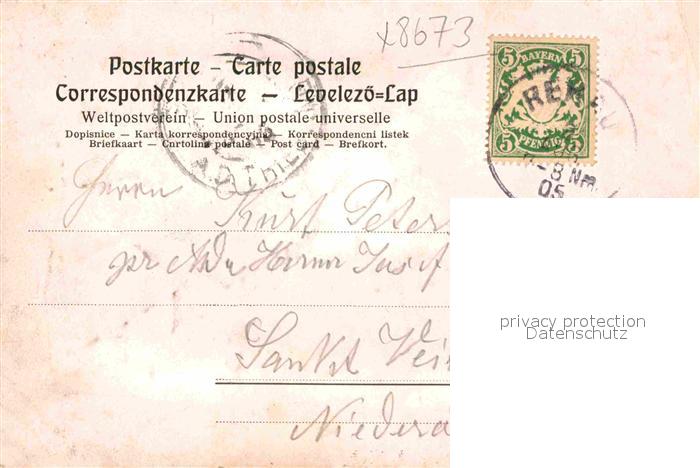 x8673
Postkarte – Carte postale
Correspondenzkarte – Levelező=Lap
Weltpostverein – Union postale universelle
Dopisnice – Karta korrespondencyjna – Korrespondencni listek
Briefkaart – Cnrtolina postale – Post card – Brefkort.
5 BAYERN 5
5 PFENNIG 5
8 Nm.
05
Herrn
Kurt Peter
Josef
Sankt Vei
Niedero
privacy protection
Datenschutz